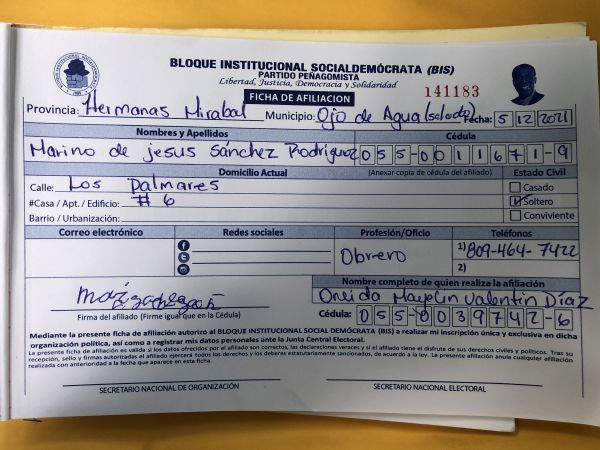 BLOQUE INSTITUCIONAL SOCIALDEMÓCRATA (BIS)
PARTIDO PEÑAGOMISTA
Libertad, Justicia, Democracia y Solidaridad
FICHA DE AFILIACION
141183
Provincia: Hermanas Mirabal Municipio: Ojo de Agua (salcedo) Fecha: 5 12 2021
Nombres y Apellidos Cédula
Marino de jesus Sánchez Rodríguez 055-0011671-9
Domicilio Actual (Anexar copia de cédula del afiliado) Estado Civil
Calle: Los Palmares Casado
#Casa / Apt. / Edificio: # 6 Soltero
Barrio / Urbanización: Conviviente
Correo electrónico Redes sociales Profesión/Oficio Teléfonos
Obrero 1) 809-464-7422
2)
Nombre completo de quien realiza la afiliación
Oneida Mayelin Valentin Díaz
Firma del afiliado (Firme igual que en la Cédula) Cédula: 055-0039742-6
Mediante la presente ficha de afiliación autorizo al BLOQUE INSTITUCIONAL SOCIAL DEMÓCRATA (BIS) a realizar mi inscripción única y exclusiva en dicha
organización política, así como a registrar mis datos personales ante la Junta Central Electoral.
La presente ficha de afiliación es válida si los datos ofrecidos por el afiliado son correctos, las declaraciones veraces y si el afiliado tiene el disfrute de sus derechos civiles y políticos. Tras su
recepción, sello y firmas autorizadas el afiliado ejercerá todos los derechos y los deberes estatutariamente sancionados, de acuerdo a la ley. La presente afiliación anula cualquier afiliación
realizada con anterioridad a la fecha que aparece en esta ficha.
SECRETARIO NACIONAL DE ORGANIZACIÓN SECRETARIO NACIONAL ELECTORAL